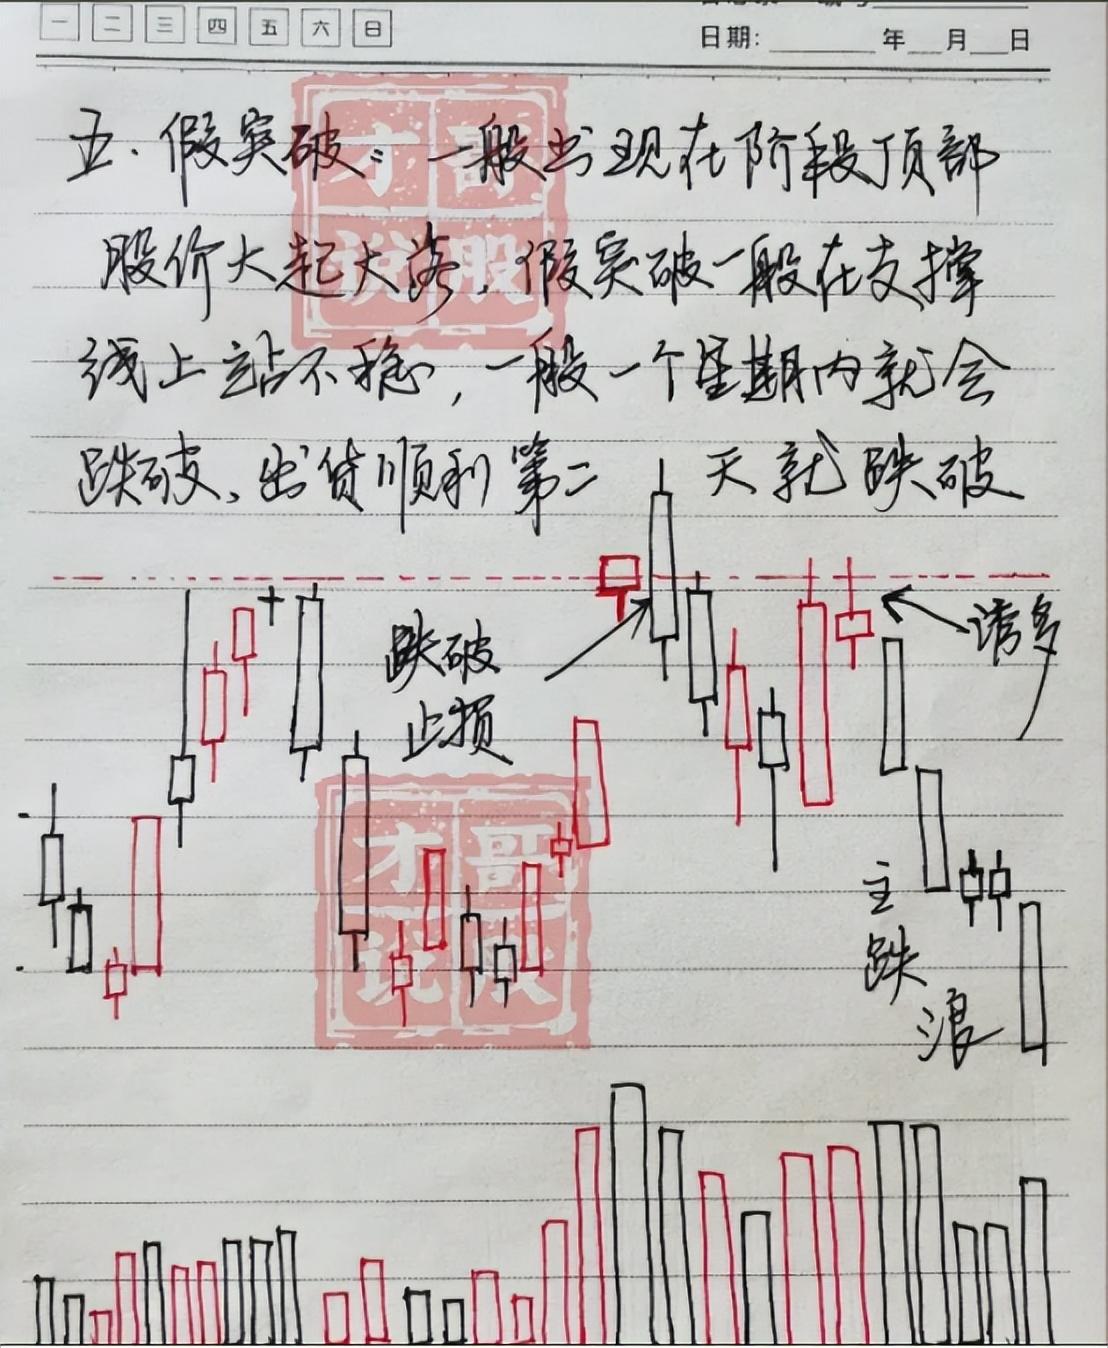 一 二 三 四 五 六 日
日期: 年 月 日
五.假突破:一般出现在阶段顶部
股价大起大落.假突破一般在支撑
线上站不稳,一般一个星期内就会
跌破、出货顺利第二 天就跌破
跌破
止损
诱多
主
跌
浪
才哥
说股
才哥
说股